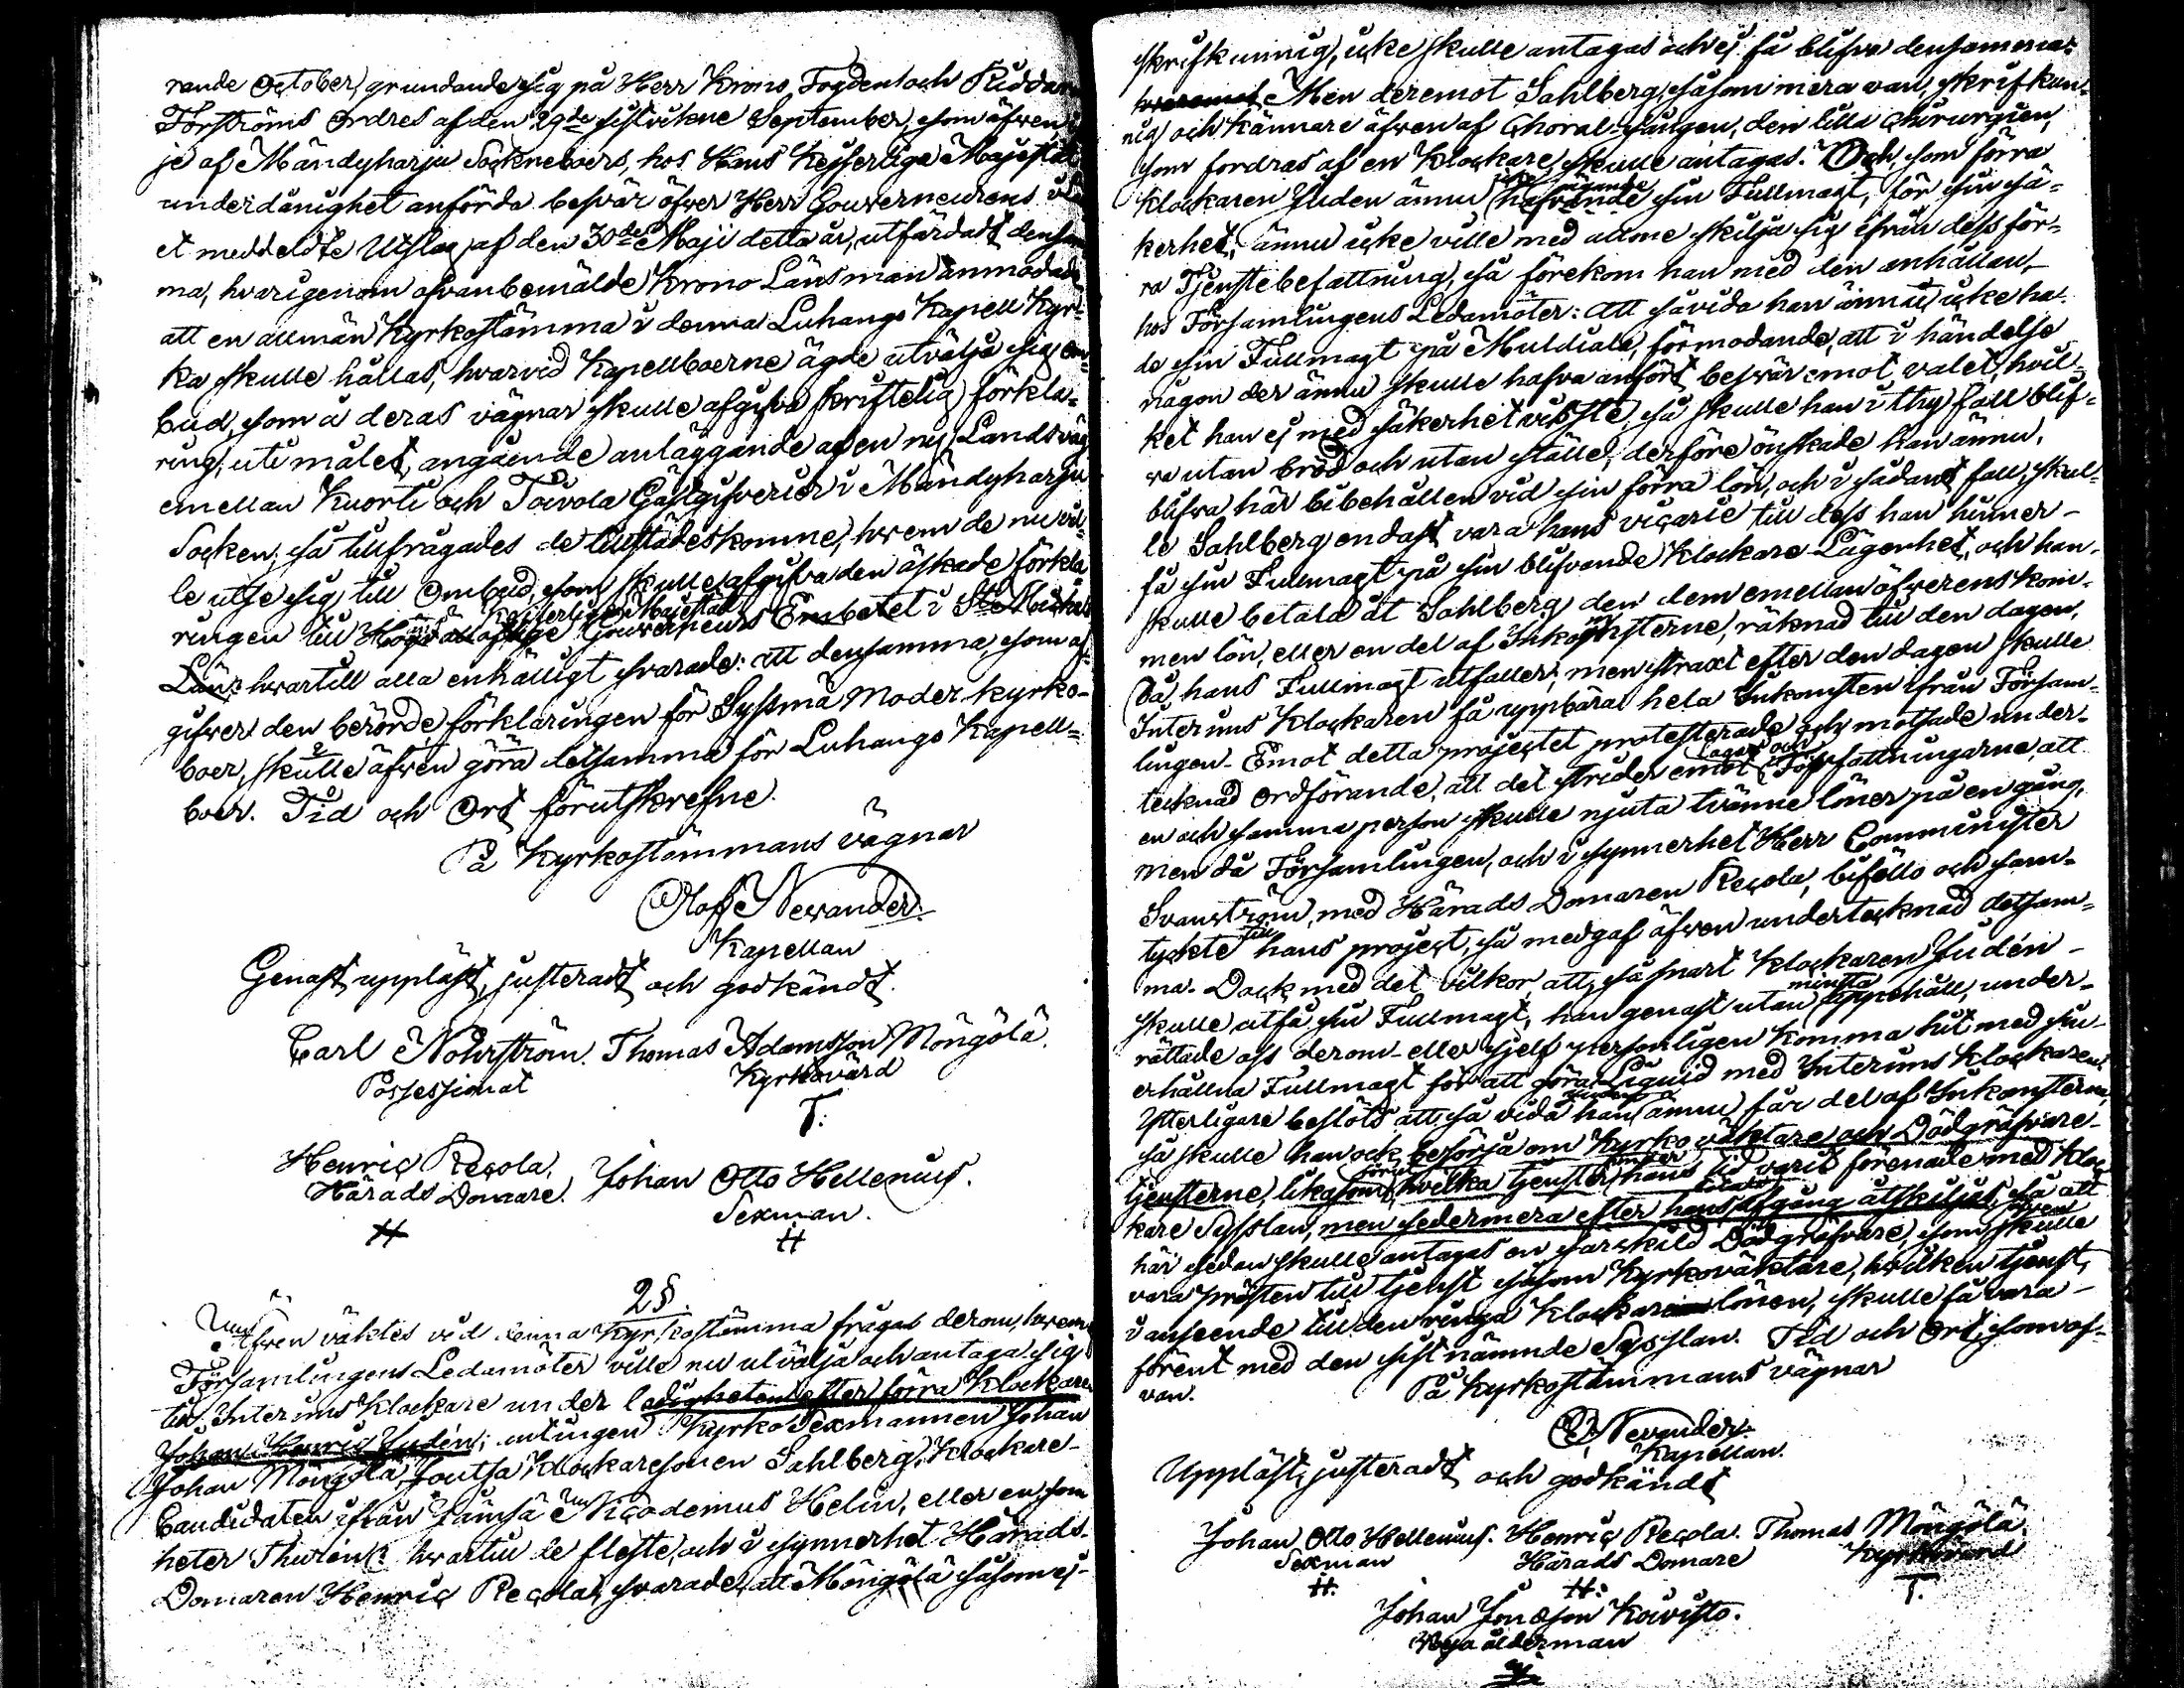 rande October, grundande sig på Herr Krono Fogden och Riddare
Forströms Ordres af den 29de sistvikne September, som äfven
je af Mändyharju Sockneboers, hos Hans Kejserliga Majestät
underdånighet anförda besvär öfver Herr Gouverneurens
et meddeldte Utslag af den 30de Maji detta år, utfärdadt densam
ma, hvarigenom ofvanbemälde Krono Länsman anmodade
att en allmän Kyrkostämma i denna Luhango Kapell Kyr-
ka skulle hållas, hvarvid Kapellboerne ägde utvälja sig om-
bud, som å deras vägnar skulle afgifva skriftelig förkla-
ring, uti målet, angående anläggande af en ny Landsväg
emellan Kuorti och Toivola Gästgifverier i Mändyharju
Socken; så tillfrågades de tillstädeskomne, hvem de nu vil-
le utse sig till Ombud, som skulle afgifva den äskade förkla
ringen till Kejserliga Majestät Gouverneurs Embetet i St Michels
Län? hvartill alla enhälligt svarade: att densamma, som af-
gifver den berörde förklaringen för Sysmä Moder kyrko-
boer, skulle äfven göra detsamma för Luhango Kapell-
boer. Tid och Ort förutskrefne.
På Kyrkostämmans vägnar
Olof Newander
Kapellan
Genast uppläst, justeradt och godkändt.
Carl Nohrström. Thomas Adamsson Möngölä.
Possessionat Kyrkovärd
T.
Henric Recola, Johan Otto Hellenius.
Härads Domare. Sexman.
# #
2§.
Äfven väktes vid denna Kyrkostämma fråga derom, hvem
Församlingens Ledamöter ville nu utvälja och antaga sig
till Interims Klockare under ledigheten efter förra Klockaren
Johan Henric Judén; antingen Kyrko Sexmannen Johan
Johan Möngölä, Joutsa Klockaresonen Sahlberg, Klockare-
Candidaten ifrån Jämsä Nicodemus Helin, eller en, som
heter Thurén? hvartill de fleste, och i synnerhet Härads-
Domaren Henric Recola, svarade, att Möngölä såsom ej-
skrifkunnig, icke skulle antagas och ej få blifva densamma;
Men deremot Sahlberg, såsom mera van, skrifkun-
nig och kännare äfven af Choral-sången, den lilla Chirurgien,
som fordras af en Klockare, skulle antagas. Och som förra
Klockaren Juden ännu icke ägande sin Fullmagt, för sin sä-
kerhet, ännu icke ville med allone skilja sig ifrån dess för-
ra Tjenstebefattning, så förekom han med den anhållan,
hos Församlingens Ledamöter: Att såvida han ännu icke ha-
de sin Fullmagt på Muldiala, förmodande, att i händelse
någon der ännu skulle hafva anfört besvär emot valet, hvil-
ket han ej med säkerhet visste, så skulle han i thy fall blif-
va utan bröd och utan ställe, derföre önskade han ännu,
blifva här bibehållen vid sin förra lön, och i sådant fall, skul-
le Sahlberg endast vara hans vicarie till dess han hinner-
få sin Fullmagt på sin blifvande Klockare Lägenhet, och han
skulle betala åt Sahlberg den dem emellan öfverenskom-
men lön, eller en del af Inkomsterne, räknad till den dagen,
då hans Fullmagt utfaller; men straxt efter den dagen skulle
Interims Klockaren få uppbära hela Inkomsten ifrån Försam-
lingen. Emot detta projectet protesterade och motsade under-
tecknad Ordförande, att det strider emot Lagar och Författningarne, att
en och samma person skulle njuta tvänne löner på en gång,
men då Församlingen, och i synnerhet Herr Comminister
Svanström, med Härads Domaren Recola, biföllo och sam-
tyckte till hans project, så medgaf äfven undertecknad detsam-
ma. Dock, med det vilkor, att, så snart Klockaren Judén-
skulle utfå sin Fullmagt, han genast utan minsta uppehåll, under-
rättade oss derom- eller sjelf personligen komma hit med sin
erhållna Fullmagt för att göra Liquid med Interims Klockaren.
Ytterligare beslöts att så vida han ännu får del af Inkomsterne,
så skulle han ock besörja om Kyrko väktare och Dödgräfvare-
tjensterne, likasom förut hvilka tjenster under hans tid varit förenade med Kloc-
kare Sysslan, men sedermera efter hans afgång åtskiljas, så att
här sedan skulle antagas en särskild Dödgräfvare, som äfven skulle
vara Prästen till tjenst såsom Kyrkoväktare, hvilken tjenst,
i anseende till den ringa Klockare lönen, skulle få vara-
förent med den sist nämnde Sysslan. Tid och Ort, som of-
van.
På Kyrkostämmans vägnar
O. Nevander
Kapellan.
Uppläst, justeradt och godkändt
Johan Otto Hellenius. Henric Recola. Thomas Möngölä.
Sexman Härads Domare Kyrkovärd
#. #: T.
Johan Jonasson Koivisto.
Byaålderman